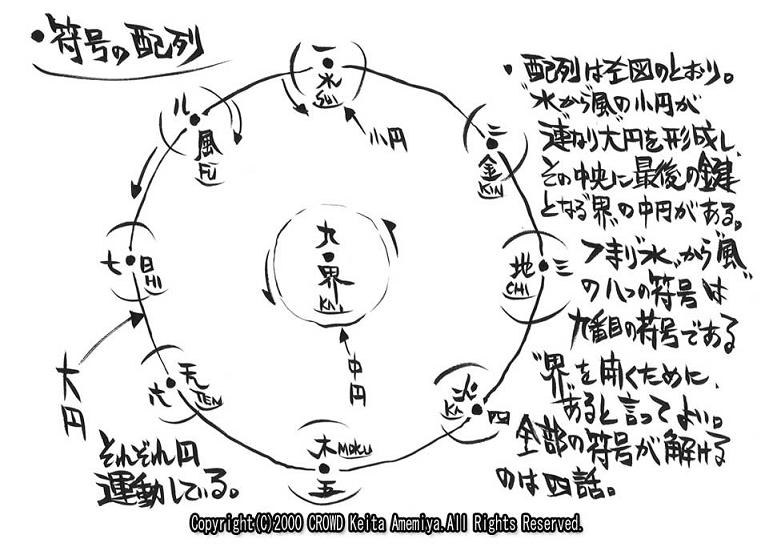 ・符号の配列
一
水
SUI
小円
二
金
KIN
三
地
CHI
四
火
KA
五
木
MOKU
六
天
TEN
七
日
HI
八
風
FU
九
界
KAI
中円
大円
それぞれ円
運動している。
・配列は左図のとおり。
“水”から風の小円が
連なり大円を形成し、
その中央に最後の鍵
となる“界”の中円がある。
つまり“水”から“風”
の八つの符号は
九番目の符号である
“界”を開くために
あると言ってよい。
全部の符号が解ける
のは四話。
Copyright(C)2000 CROWD Keita Amemiya.All Rights Reserved.